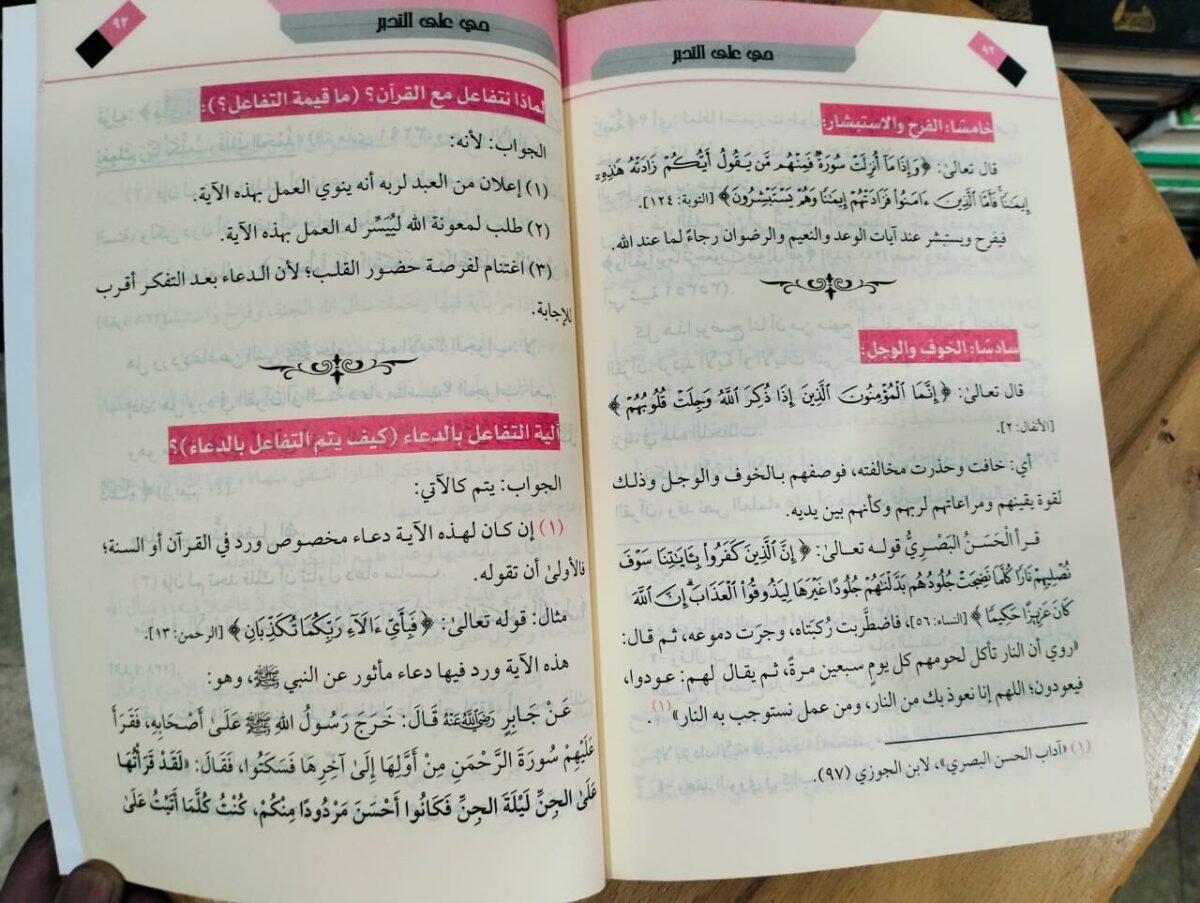 ٩٢
حي على التدبر
خامسًا: الفرح والاستبشار:
قال تعالى: ﴿وَإِذَا مَآ أُنزِلَتْ سُورَةٌ فَمِنْهُم مَّن يَقُولُ أَيُّكُمْ زَادَتْهُ هَٰذِهِۦٓ
إِيمَٰنًا فَأَمَّا ٱلَّذِينَ ءَامَنُوا۟ فَزَادَتْهُمْ إِيمَٰنًا وَهُمْ يَسْتَبْشِرُونَ﴾ [التوبة: ١٢٤].
فيفرح ويستبشر عند آيات الوعد والنعيم والرضوان رجاءً لما عند الله.
سادسًا: الخوف والوجل:
قال تعالى: ﴿إِنَّمَا ٱلْمُؤْمِنُونَ ٱلَّذِينَ إِذَا ذُكِرَ ٱللَّهُ وَجِلَتْ قُلُوبُهُمْ﴾
[الأنفال: ٢].
أي: خافت وحذرت مخالفته، فوصفهم بالخوف والوجل وذلك
لقوة يقينهم ومراعاتهم لربهم وكأنهم بين يديه.
قرأ الْحَسَنُ البَصْرِيُّ قوله تعالى: ﴿إِنَّ ٱلَّذِينَ كَفَرُوا۟ بِـَٔايَٰتِنَا سَوْفَ
نُصْلِيهِمْ نَارًا كُلَّمَا نَضِجَتْ جُلُودُهُم بَدَّلْنَٰهُمْ جُلُودًا غَيْرَهَا لِيَذُوقُوا۟ ٱلْعَذَابَ إِنَّ ٱللَّهَ
كَانَ عَزِيزًا حَكِيمًا﴾ [النساء: ٥٦]، فاضطَّربت رُكبَتاه، وجرَت دموعه، ثم قال:
«روي أن النار تأكل لحومهم كل يومٍ سبعين مرةً، ثم يقال لهم: عودوا،
فيعودون؛ اللهم إنا نعوذ بك من النار، ومن عمل نستوجب به النار»(١).
(١) «آداب الحسن البصري»، لابن الجوزي (٩٧).
حي على التدبر
٩٣
لماذا نتفاعل مع القرآن؟ (ما قيمة التفاعل؟):
الجواب: لأنه:
(١) إعلان من العبد لربه أنه ينوي العمل بهذه الآية.
(٢) طلب لمعونة الله ليُيَسِّر له العمل بهذه الآية.
(٣) اغتنام لفرصة حضور القلب؛ لأن الدعاء بعد التفكر أقرب
للإجابة.
آلية التفاعل بالدعاء (كيف يتم التفاعل بالدعاء)؟
الجواب: يتم كالآتي:
(١) إن كان لهذه الآية دعاء مخصوص ورد في القرآن أو السنة؛
فالأولى أن تقوله.
مثال: قوله تعالى: ﴿فَبِأَىِّ ءَالَآءِ رَبِّكُمَا تُكَذِّبَانِ﴾ [الرحمن: ١٣].
هذه الآية ورد فيها دعاء مأثور عن النبي ﷺ، وهو:
عَنْ جَابِرٍ رَضِيَ اللَّهُ عَنْهُ قَالَ: خَرَجَ رَسُولُ اللهِ ﷺ عَلَى أَصْحَابِهِ، فَقَرَأَ
عَلَيْهِمْ سُورَةَ الرَّحْمَنِ مِنْ أَوَّلِهَا إِلَى آخِرِهَا فَسَكَتُوا، فَقَالَ: «لَقَدْ قَرَأْتُهَا
عَلَى الجِنِّ لَيْلَةَ الجِنِّ فَكَانُوا أَحْسَنَ مَرْدُودًا مِنْكُمْ، كُنْتُ كُلَّمَا أَتَيْتُ عَلَى